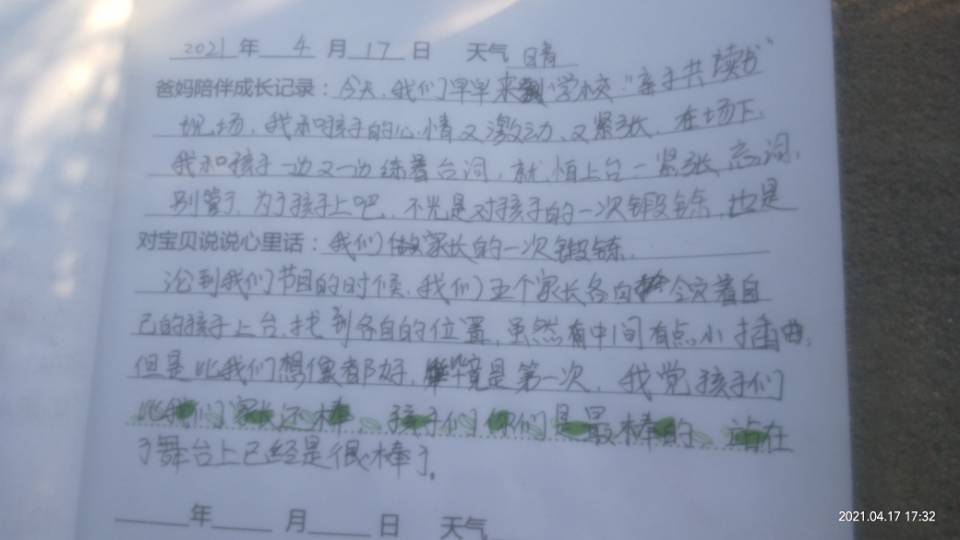 2021 年 4 月 17 日 天气 晴
爸妈陪伴成长记录：今天，我们早早来到学校"亲子共读书"
现场，我和孩子的心情又激动，又紧张，在场下，
我和孩子一边又一边练着台词，就怕上台一紧张，忘词，
别管了，为了孩子上吧，不光是对孩子的一次锻铩，也是
对宝贝说说心里话：我们做家长的一次锻练，
论到我们节目的时候，我们五个家长各自 着自
己的孩子上台，找到各自的位置，虽然有中间有点小插曲，
但是比我们想像都好，毕竟是第一次，我觉孩子们
比我们家长还棒，孩子们你们是最棒的，站在
了舞台上已经是很棒了。
年 月 日 天气
2021.04.17 17:32